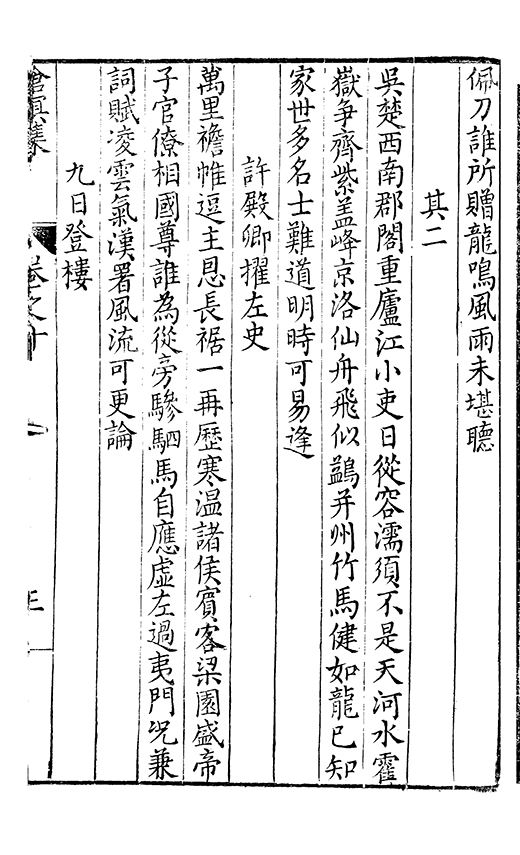 佩刀誰所贈龍鳴風雨未堪聽
其二
吳楚西南郡閣重廬江小吏日從容濡須不是天河水霍
嶽爭齊紫盖峰京洛仙舟飛似鷁并州竹馬健如龍已知
家世多名士難道明時可易逢
許殿卿擢左史
萬里襜帷逗主恩長裾一再歷寒温諸侯賓客梁園盛帝
子官僚相國尊誰為從旁驂駟馬自應虛左過夷門况兼
詞賦凌雲氣漢署風流可更論
九日登樓
滄溟集
卷之十